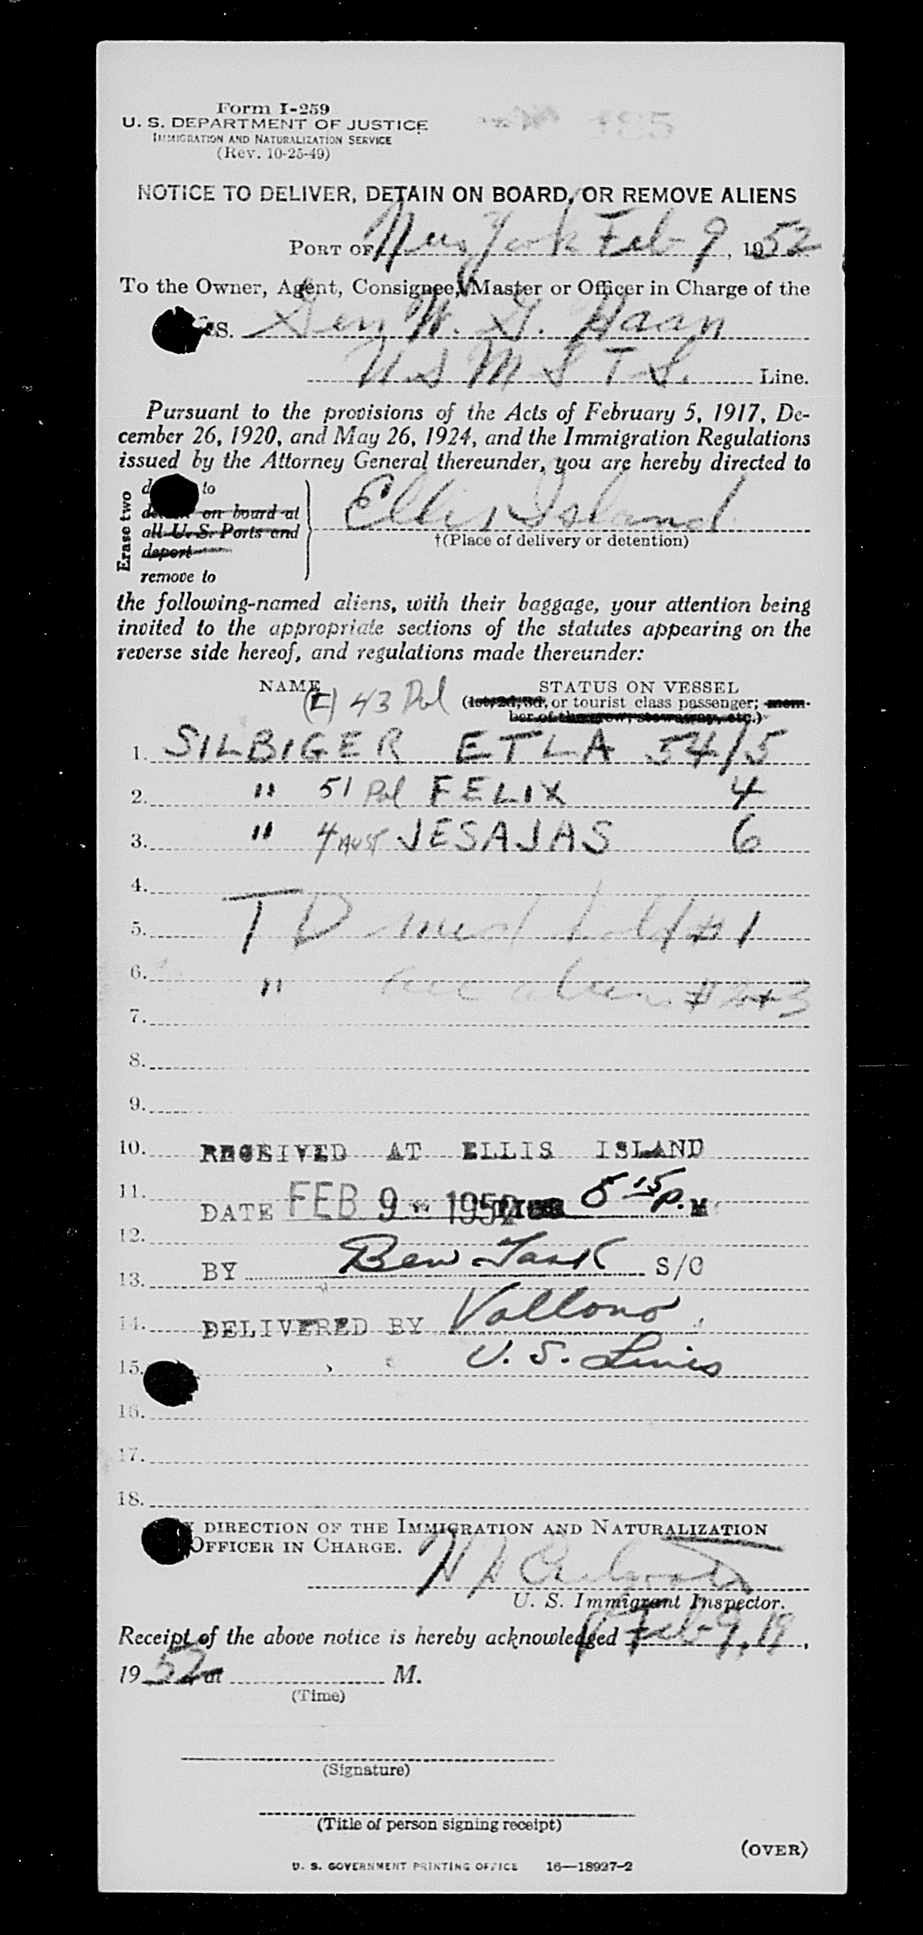 Form I-259
U. S. DEPARTMENT OF JUSTICE
IMMIGRATION AND NATURALIZATION SERVICE
(Rev. 10-25-49)
NOTICE TO DELIVER, DETAIN ON BOARD, OR REMOVE ALIENS
PORT OF New York Feb 9, 1952
To the Owner, Agent, Consignee, Master or Officer in Charge of the
SS. Gen W. G. Haan
U S M S T S. Line.
Pursuant to the provisions of the Acts of February 5, 1917, De-
cember 26, 1920, and May 26, 1924, and the Immigration Regulations
issued by the Attorney General thereunder, you are hereby directed to
Erase two
to
on board at
all U. S. Ports and
deport
remove to
Ellis Island
†(Place of delivery or detention)
the following-named aliens, with their baggage, your attention being
invited to the appropriate sections of the statutes appearing on the
reverse side hereof, and regulations made thereunder:
NAME STATUS ON VESSEL
43 Pol (1st, 2d, 3d, or tourist class passenger; mem-
ber of the crew, stowaway, etc.)
1. SILBIGER ETLA 54/5
2. " 51 Pol FELIX 4
3. " 4 AUST JESAJAS 6
4.
5. T D med hold #1
6. " acc alien #2+3
7.
8.
9.
10. RECEIVED AT ELLIS ISLAND
11. DATE FEB 9 - 1952 TIME 5 15 P. M
12.
13. BY Ben S/O
14. DELIVERED BY Vallono
15. U. S. Lines
16.
17.
18.
DIRECTION OF THE IMMIGRATION AND NATURALIZATION
OFFICER IN CHARGE.
U. S. Immigrant Inspector.
Receipt of the above notice is hereby acknowledged Feb 9, 19,
1952 at M.
(Time)
(Signature)
(Title of person signing receipt)
(OVER)
U. S. GOVERNMENT PRINTING OFFICE 16—18927-2